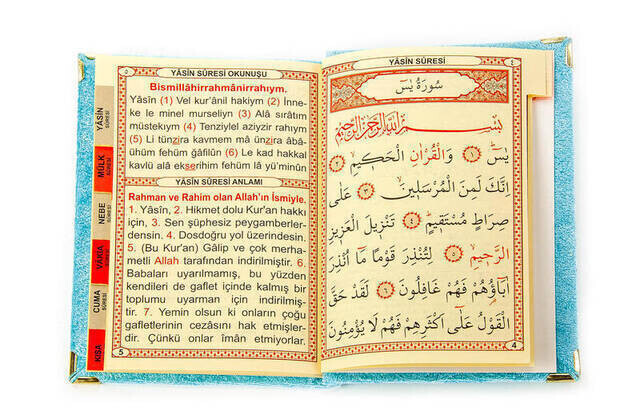 YÂSÎN SÛRESİ
٤
سُورَةُ يٰسٓ
بِسْمِ اللّٰهِ الرَّحْمٰنِ الرَّحِيمِ
يٰسٓ ﴿١﴾ وَالْقُرْاٰنِ الْحَكِيمِ ﴿٢﴾
اِنَّكَ لَمِنَ الْمُرْسَلِينَ ﴿٣﴾ عَلٰى
صِرَاطٍ مُسْتَقِيمٍ ﴿٤﴾ تَنْزِيلَ الْعَزِيزِ
الرَّحِيمِ ﴿٥﴾ لِتُنْذِرَ قَوْمًا مَٓا اُنْذِرَ
اٰبَٓاؤُ۬هُمْ فَهُمْ غَافِلُونَ ﴿٦﴾ لَقَدْ حَقَّ
الْقَوْلُ عَلٰٓى اَكْثَرِهِمْ فَهُمْ لَا يُؤْمِنُونَ
4
٥
YÂSÎN SÛRESİ OKUNUŞU
Bismillâhirrahmânirrahıym.
Yâsîn (1) Vel kur'ânil hakiym (2) İnne-
ke le minel murseliyn. (3) Alâ sırâtım
müstekıym (4) Tenziylel aziyzir rahıym
(5) Li tünzira kavmem mâ ünzira âbâ-
ühüm fehüm ğâfilûn (6) Le kad hakkal
kavlü alâ ekserihim fehüm lâ yü'minûn
YÂSÎN SÛRESİ ANLAMI
Rahman ve Rahim olan Allah'ın İsmiyle.
1. Yâsîn, 2. Hikmet dolu Kur'an hakkı
için, 3. Sen şüphesiz peygamberler-
densin. 4. Dosdoğru yol üzerindesin.
5. (Bu Kur'an) Gâlip ve çok merha-
metli Allah tarafından indirilmiştir. 6.
Babaları uyarılmamış, bu yüzden
kendileri de gaflet içinde kalmış bir
toplumu uyarman için indirilmiş-
tir. 7. Yemin olsun ki onların çoğu
gafletlerinin cezâsını hak etmişler-
dir. Çünkü onlar îmân etmiyorlar.
5
YÂSÎN
SÛRESİ
MÜLK
SÛRESİ
NEBE
SÛRESİ
VÂKIA
SÛRESİ
CUMA
SÛRESİ
KISA